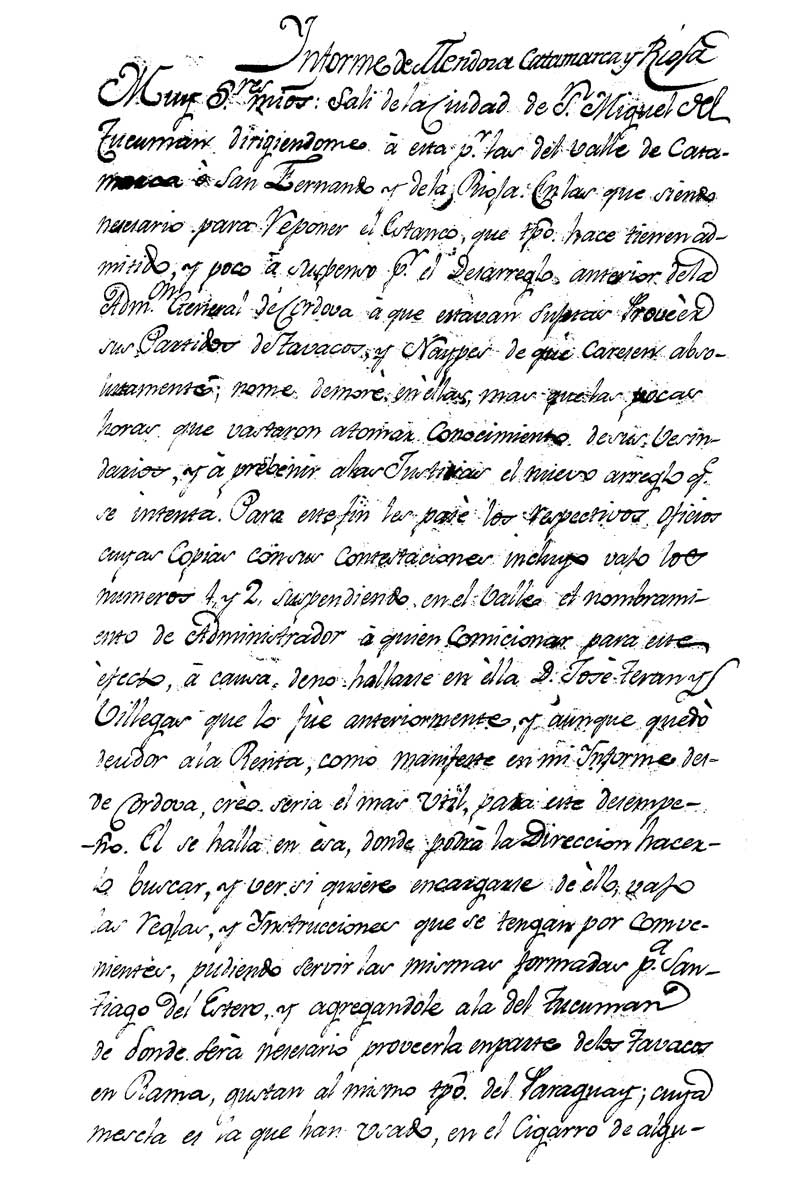 Ynforme de Mendoza Catamarca y Rioja
Muy S.res mios: Sali de la Ciudad de S.n Miguel del
Tucuman dirigiendome à esta p.r las del Valle de Cata-
marca ò San Fernando y dela Rioja. En las que siendo
nesesario para Reponer el Estanco, que tpõ. hace tienen ad-
mitido, y poco à suspenso p.r el Desarreglo anterior de la
Adm.on General de Cordova à que estavan sujetas Proveèr
sus Partidos de Tavacos, y Naypes de què Caresen abso-
lutamente; no me demorè en èllas, mas que las pocas
horas que vastaron atomar Conocimiento de sus Vesin-
darios, y à prebenir alas Justicias el nuevo arreglo q.e
se intenta. Para este fin les pasè los respectivos oficios
cuyas Copias con sus Contestaciones incluyo vajo los
numeros 1, y 2, suspendiendo en el Valle el nombrami-
ento de Administrador à quien Comicionar para este
èfecto, à causa deno hallarse en èlla D. Josè Teran y
Villegas que lo fùe anteriormente, y aunque quedò
deudor ala Renta, como manifeste en mi Ynforme des-
de Cordova, crèo seria el mas Util, para este desempe-
-ño. El se halla en èsa, donde podrà la Direccion hacer-
lo buscar, y ver si quiere encargarse de èllo, vajo
las Reglas, y Ynstrucciones que se tengan por combe-
nientes, pudiendo servir las mismas formadas p.a San-
tiago del Estero, y agregandole ala del Tucuman
de donde serà nesesario proveerla en parte delos Tavacos
en Rama, gustan al mismo tpõ. del Paraguay; cuya
mescla es la que han Usado, en el Cigarro de algu-